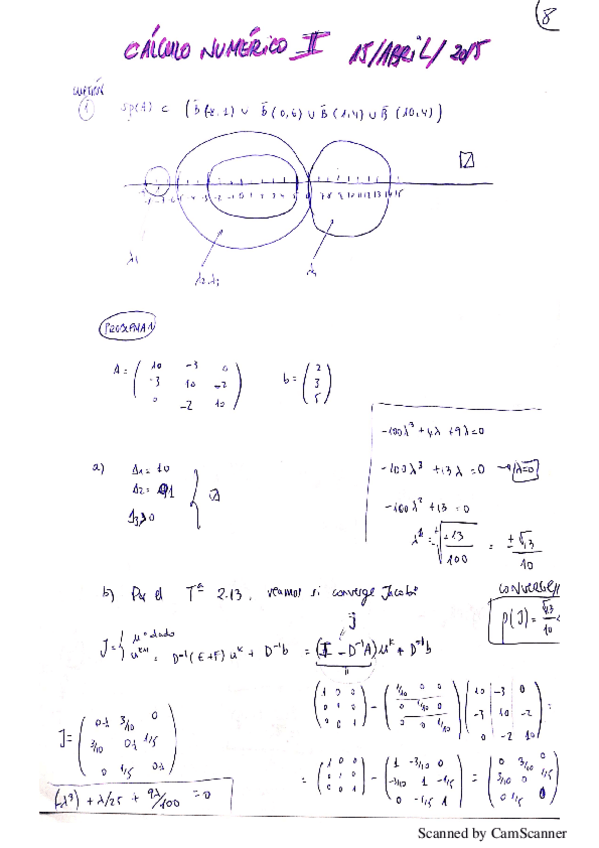 8
CÁLCULO NUMÉRICO II 15/ABRIL/2015
CUESTIÓN
1
Sp(A) ⊂ (B̄(-8,1) ∪ B̄(0,6) ∪ B̄(1,4) ∪ B̄(10,4))
λ1
PROBLEMA 1
A = ( 10 -3 0
-3 10 -2
0 -2 10 )
b = ( 2
3
5 )
-100λ³ + 4λ + 9λ = 0
-100λ³ + 13λ = 0 → λ=0
-100λ² + 13 = 0
= ±√13
10
a) Δ1 = 10
Δ2 = 91
Δ3>0
b) Por el Tª 2.13, veamos si converge Jacobi
CONVERGE
ρ(J) = √13
10
J = { u⁰ dado
uᵏ⁺¹ = D⁻¹(E+F)uᵏ + D⁻¹b = (I - D⁻¹A)uᵏ + D⁻¹b
J
( 1 0 0
0 1 0
0 0 1 ) - ( 1/10 0 0
0 1/10 0
0 0 1/10 ) ( 10 -3 0
-3 10 -2
0 -2 10 ) =
J = ( 3/10 0
3/10 1/5
0 1/5 )
= ( 1 0 0
0 1 0
0 0 1 ) - ( 1 -3/10 0
-3/10 1 -1/5
0 -1/5 1 ) = ( 0 3/10 0
3/10 0 1/5
0 1/5 0 )
(-λ³) + λ/25 + 9λ/100 = 0
Scanned by CamScanner